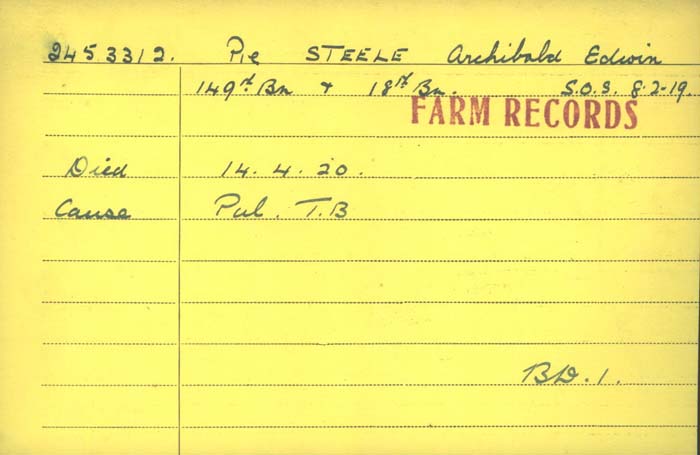 2453312. Pte STEELE Archibald Edwin
149th Bn + 18th Bn. S.O.S. 8-2-19.
FARM RECORDS
Died 14.4.20.
Cause Pul. T.B
BD.1.